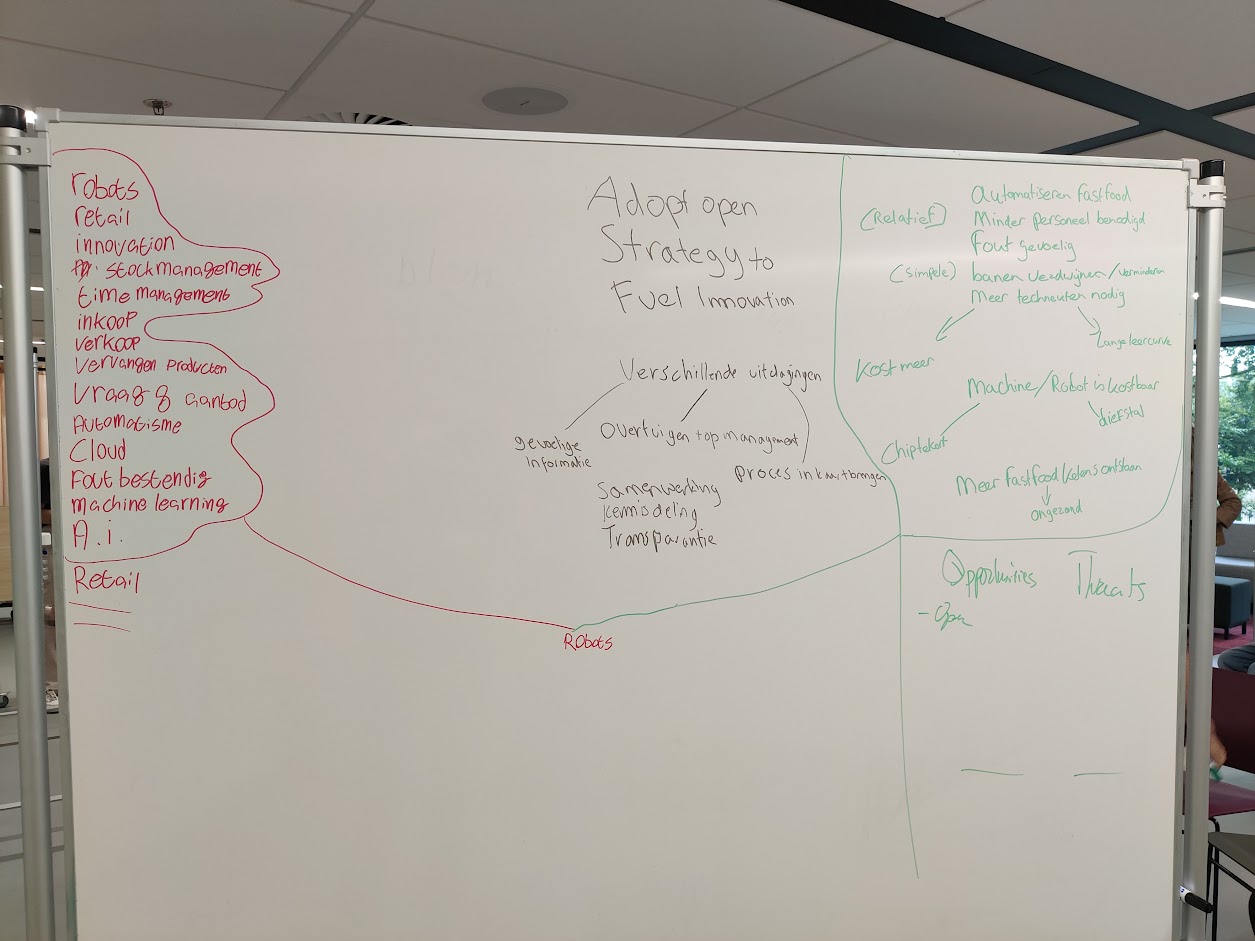 robots
retail
innovation
stockmanagement
time management
inkoop
verkoop
vervangen producten
vraag & aanbod
Automatisme
Cloud
Fout bestendig
machine learning
A.i.
Retail
Adopt open
Strategy to
Fuel Innovation
Verschillende uitdagingen
gevoelige
informatie
Overtuigen topmanagement
Proces in kaart brengen
Samenwerking
Kennisdeling
Transparantie
Robots
Automatiseren fastfood
(Relatief) Minder personeel benodigd
Fout gevoelig
(simpele) banen verdwijnen/verminderen
Meer techneuten nodig
Kost meer
Lange leercurve
Machine/Robot is kostbaar
Chiptekort
diefstal
Meer fastfood ketens ontstaan
ongezond
Opportunities Threats
- Open